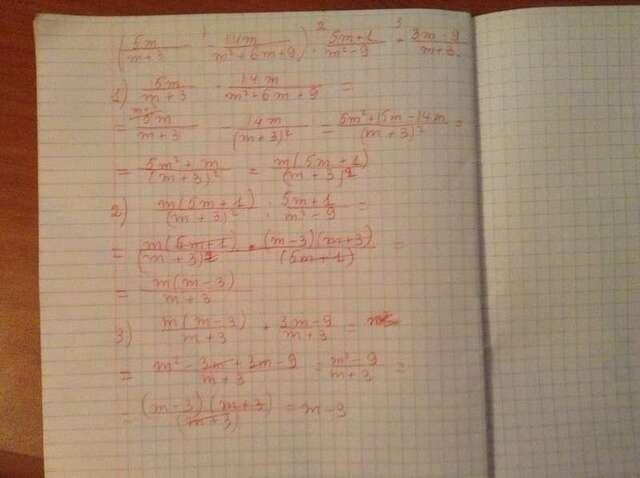 (5m/(m+3) - 14m/(m²+6m+9)) : (5m+1)/(m²-9) + (3m-9)/(m+3)
1) 5m/(m+3) - 14m/(m²+6m+9) =
= 5m/(m+3) - 14m/(m+3)² = (5m²+15m-14m)/(m+3)² =
= (5m²+m)/(m+3)² = m(5m+1)/(m+3)²
2) m(5m+1)/(m+3)² : (5m+1)/(m²-9) =
= m(5m+1)/(m+3)² • (m-3)(m+3)/(5m+1) =
= m(m-3)/(m+3)
3) m(m-3)/(m+3) + (3m-9)/(m+3) =
= (m²-3m+3m-9)/(m+3) = (m²-9)/(m+3) =
= (m-3)(m+3)/(m+3) = m-3